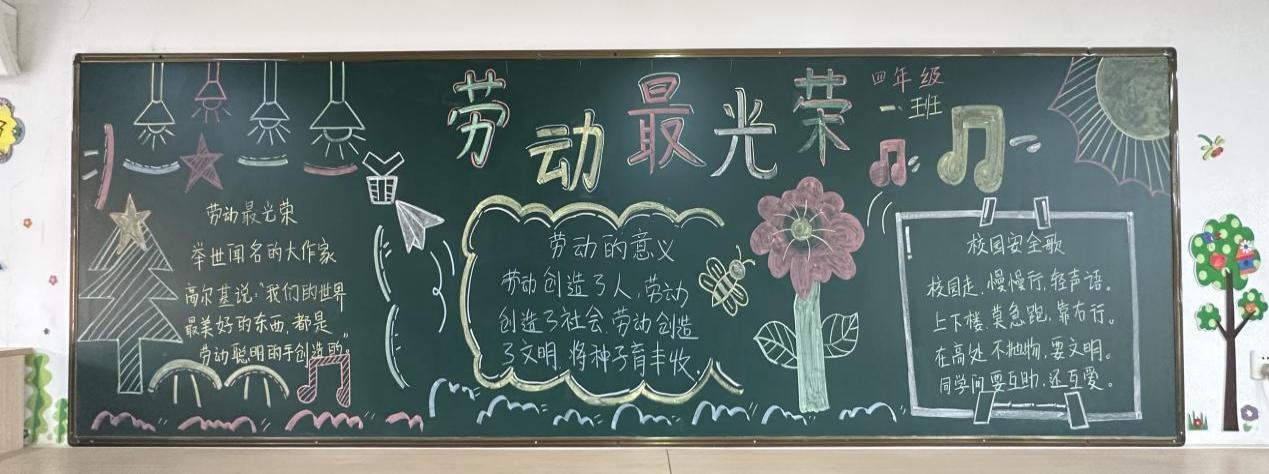 劳动最光荣
四年级
一班
劳动最光荣
举世闻名的大作家
高尔基说:“我们的世界
最美好的东西,都是
劳动聪明的手创造的。”
劳动的意义
劳动创造了人,劳动
创造了社会,劳动创造
了文明,将种子育丰收.
校园安全歌
校园走,慢慢行,轻声语。
上下楼,莫急跑,靠右行。
在高处,不抛物,要文明。
同学间要互助,还互爱。